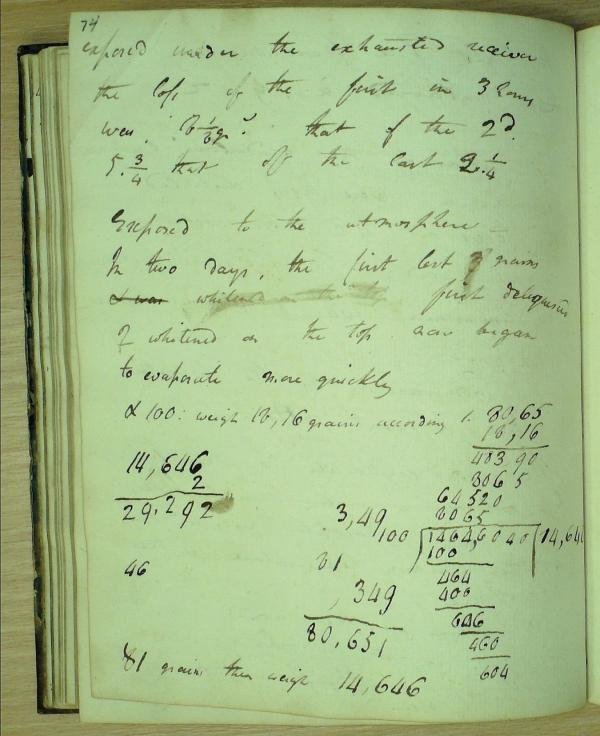 74
exposed under the exhausted receiver
the loss of the first in 3 hours
was 8 1/3 grs that of the 2d
5. 3/4 that off the last 2. 1/4
Exposed to the atmosphere
In two days, the first lost 7 grains
& was whitened on the top first deliquesced
& whitened on the top now began
to evaporate more quickly
& 100: weigh 18,16 grains according
80,65
18,16
483 90
8065
64520
8065
100 1464,6040 14,646
100
464
400
646
460
604
14,646
2
29.292
46
3,49
81
,349
80,651
81 grains then weigh 14,646